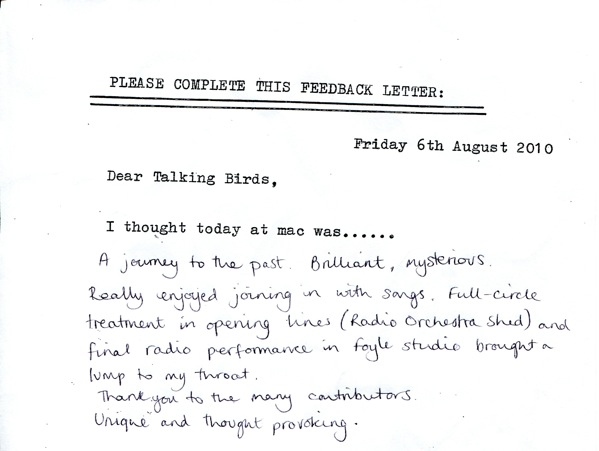 PLEASE COMPLETE THIS FEEDBACK LETTER:
Friday 6th August 2010
Dear Talking Birds,
I thought today at mac was......
A journey to the past. Brilliant, mysterious.
Really enjoyed joining in with songs. Full-circle
treatment in opening lines (Radio Orchestra Shed) and
final radio performance in foyle studio brought a
lump to my throat.
Thank you to the many contributors.
Unique and thought provoking.